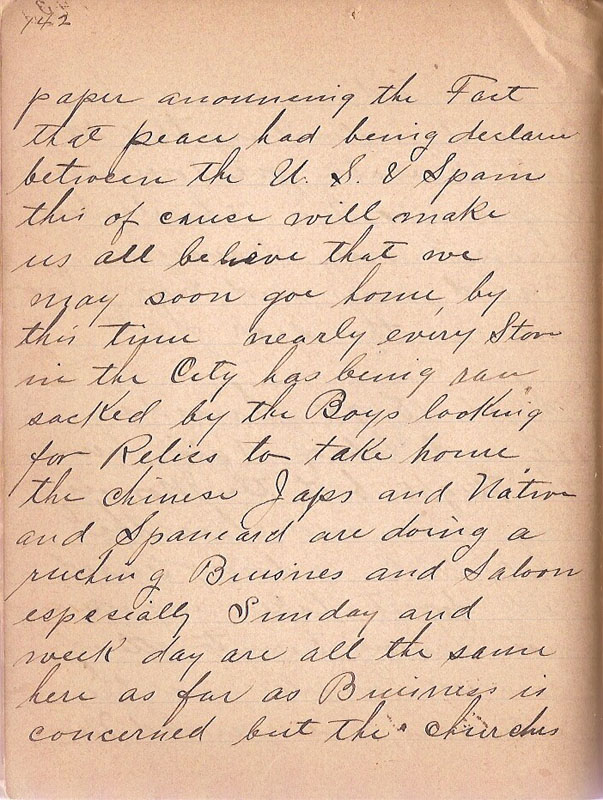 142
paper anouncing the Fact
that peace had being declare
between the U. S. & Spain
this of cause will make
us all believe that we
may soon goe home, by
this time nearly every Store
in the City has being ran
sacked by the Boys looking
for Relics to take home,
the chinese Japs and Native
and Spaneard are doing a
ruching Buisnes and Saloon
especially Sunday and
week day are all the same
here as far as Buisness is
concerned but the churches